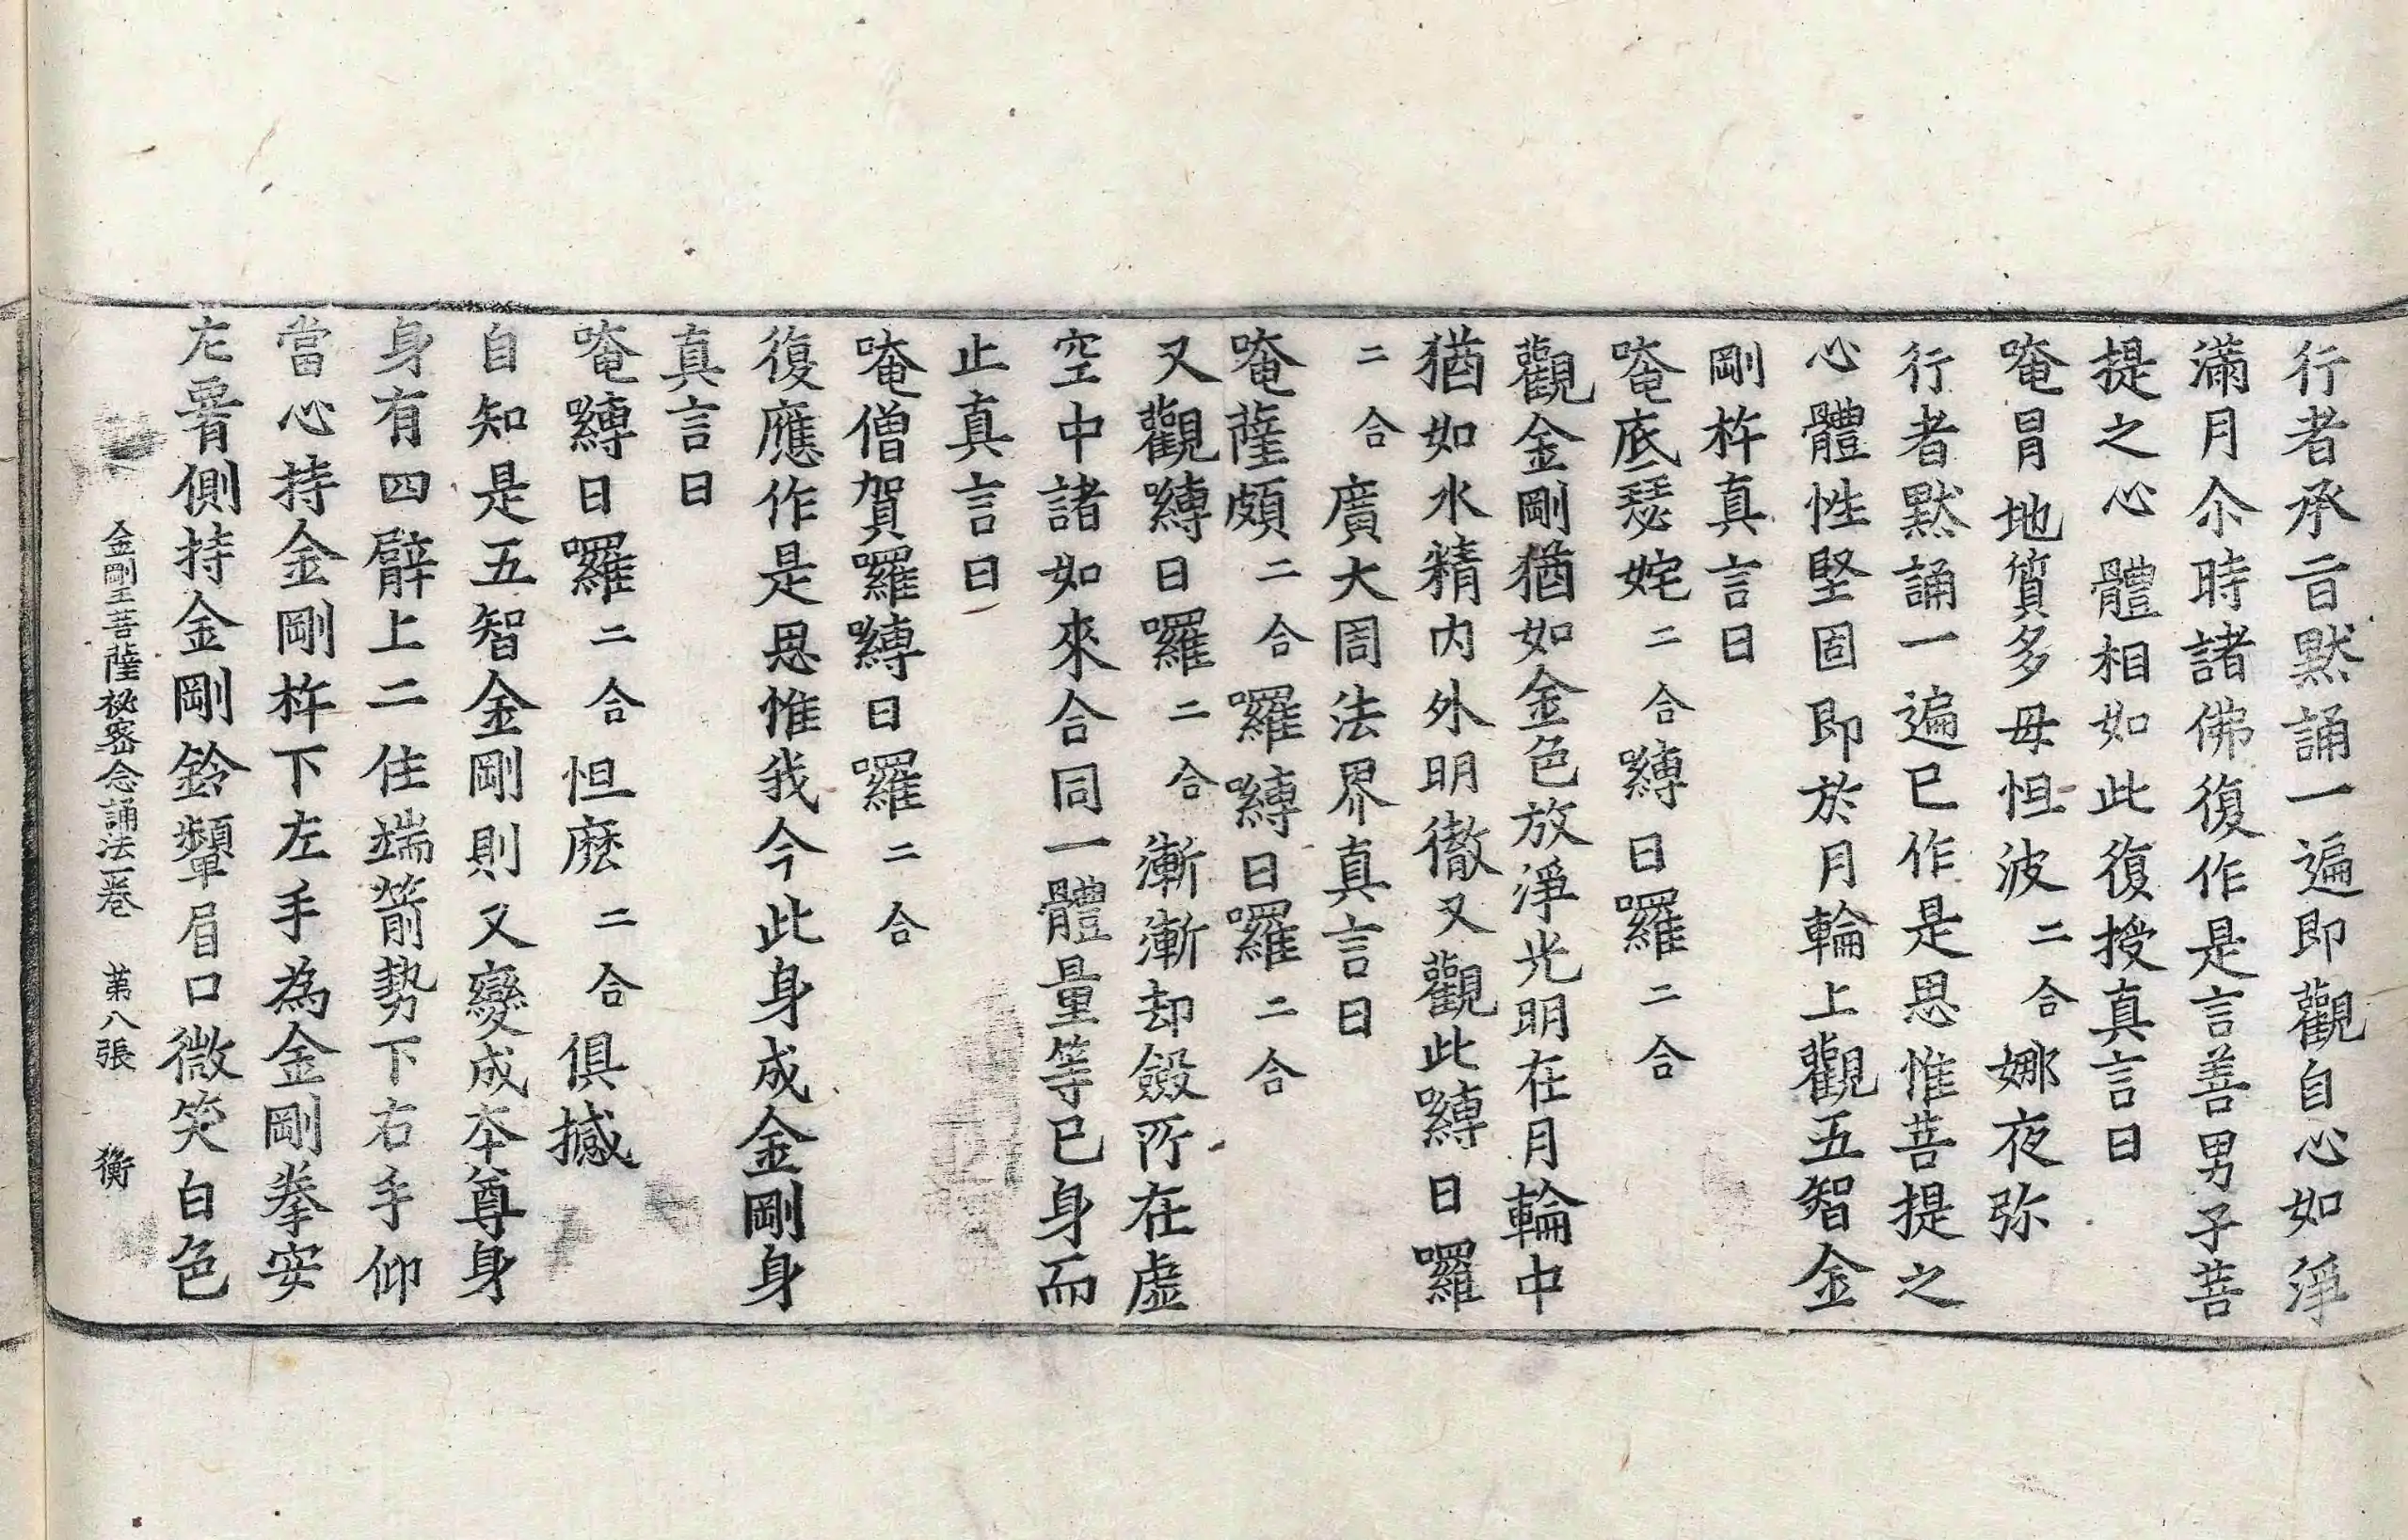 行者承旨黙誦一遍即觀自心如淨
滿月尒時諸佛復作是言善男子菩
提之心體相如此復授真言曰
唵冒地質多毋怛波二合娜夜弥
行者黙誦一遍已作是思惟菩提之
心體性堅固即於月輪上觀五智金
剛杵真言曰
唵底瑟姹二合嚩日囉二合
觀金剛猶如金色放淨光明在月輪中
猶如水精内外明徹又觀此嚩日囉
二合廣大周法界真言曰
唵薩頗二合囉嚩日囉二合
又觀嚩日囉二合漸漸却斂所在虛
空中諸如來合同一體量等已身而
止真言曰
唵僧賀囉嚩日囉二合
復應作是思惟我今此身成金剛身
真言曰
唵嚩日囉二合怛麽二合俱撼
自知是五智金剛則又變成本尊身
身有四臂上二住端箭勢下右手仰
當心持金剛杵下左手為金剛拳安
左胷側持金剛鈴顰眉口微笑白色
金剛王菩薩秘密念誦法一卷 苐八張 衡